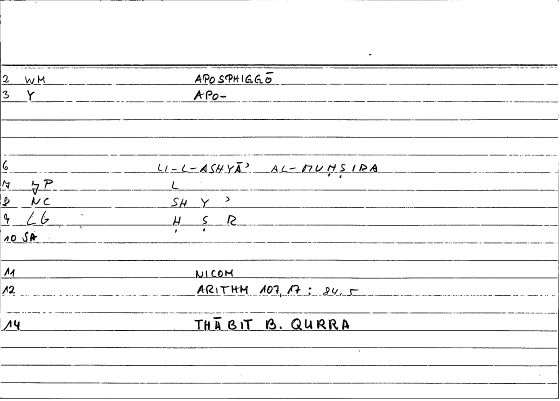 2 WM APOSPHIGGŌ
3 Y APO-
6 LI-L-ASHYĀʾ AL-MUḤṢIRA
7 JP L
8 NC SH Y ʾ
9 LG Ḥ Ṣ R
10 SA
11 NICOM
12 ARITHM 107,17 : 84,5
14 THĀBIT B. QURRA